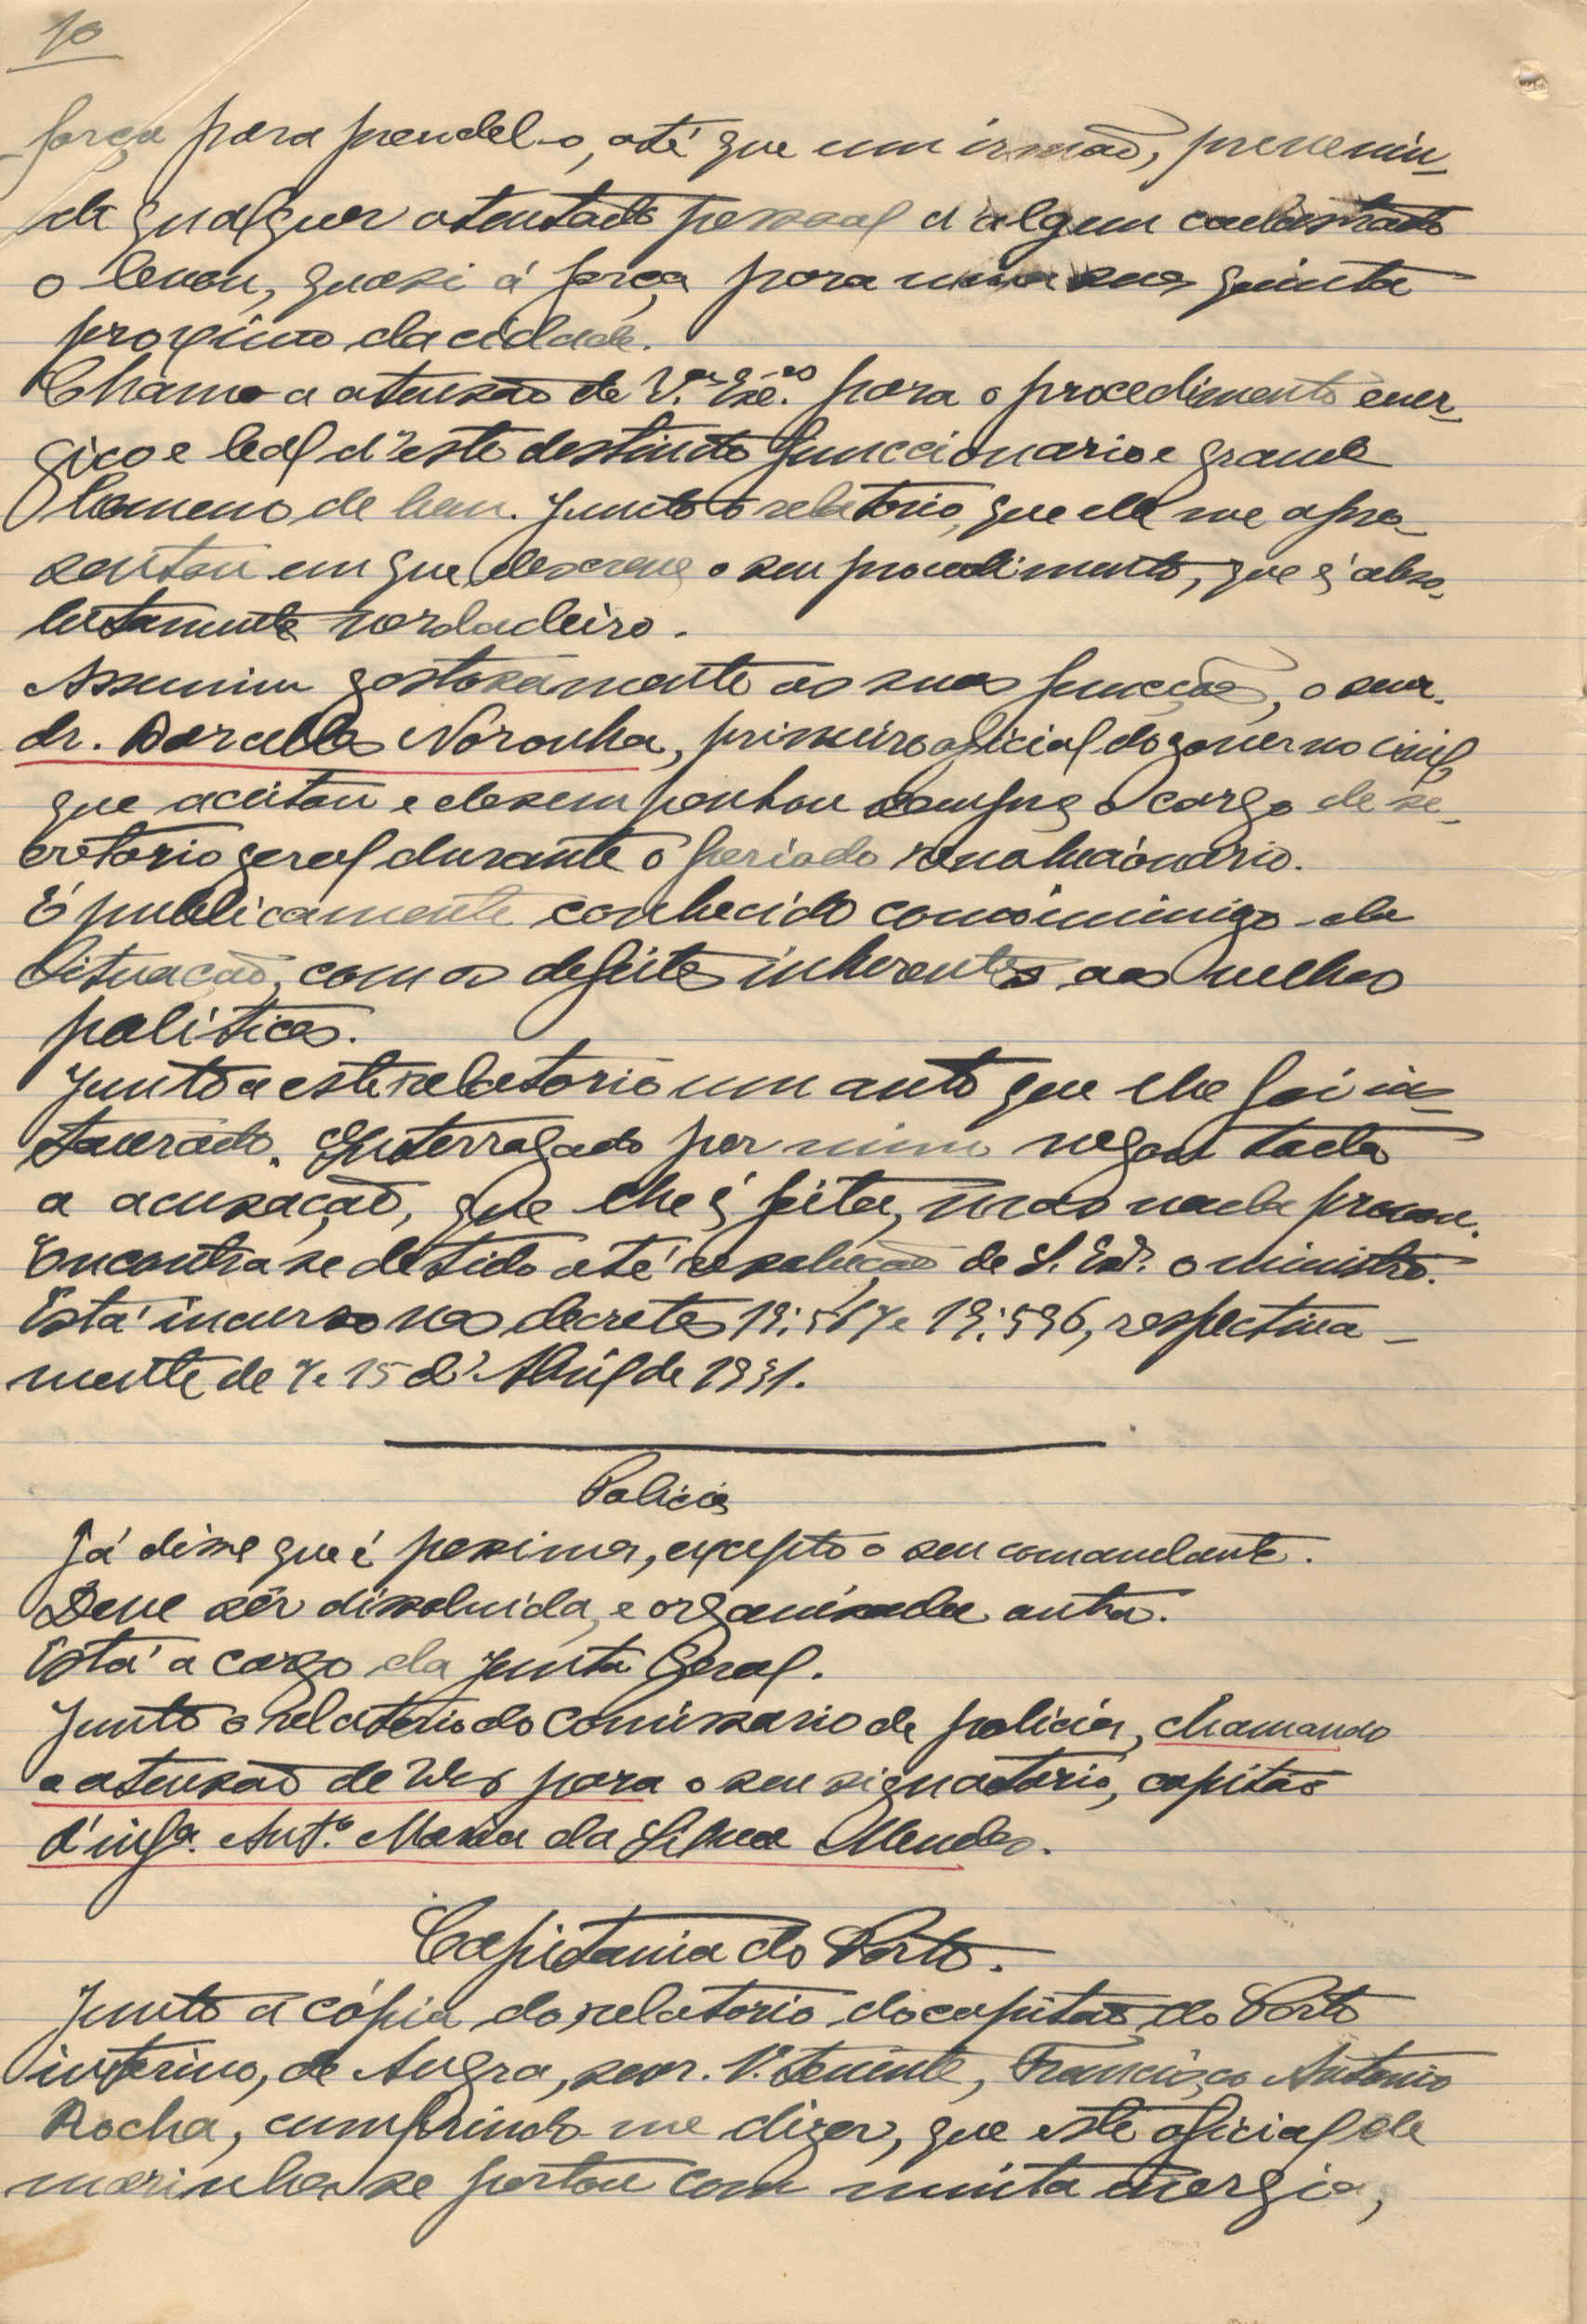 10
força para prendel-o, até que um irmão, prevenin-
do qualquer atentado pessoal d'algum cadastrado
o levou, quasi á força para uma sua quinta
proximo da cidade.
Chamo a atensão de V.as Exc.as para o procedimento ener-
gico e leal d'este destinto funccionario e grande
homem de bem. Junto o relatorio, que ele me apre-
sentou em que descreve o seu procedimento, que é abso-
lutamente verdadeiro.
Assumiu gostosamente as suas funcções, o snr.
dr. Barcellos Noronha, primeiro oficial do governo civil,
que aceitou e desempenhou sempre o cargo de se-
cretario geral durante o periodo revolucionário.
É publicamente conhecido como inimigo da
Situação, com os defeitos inherentes aos velhos
politicos.
Junto a este relatorio um auto que lhe foi ins-
taurado. Interrogado por mim negou toda
a acusação, que lhe é feita, mas nada provou.
Encontra se detido até resolução de S. Ex.ª o ministro.
Está incurso nos decretos 19:567 e 19:596, respectiva-
mente de 7 e 15 d'Abril de 1931.
Policia
Já disse que é pessima, excepto o seu comandante.
Deve sêr dissolvida, e organisada outra.
Está a cargo da Junta Geral.
Junto o relatorio do comissario de policia, chamando
a atensão de V.as para o seu signatario, capitão
d'inf.a Ant.º Maria da Silva Mendes.
Capitania do Porto.
Junto a cópia do relatorio do capitão do Porto
interino, de Angra, snr. 1.º tenente, Francisco Antonio
Rocha, cumprindo-me dizer, que este oficial de
marinha se portou com muita energia,